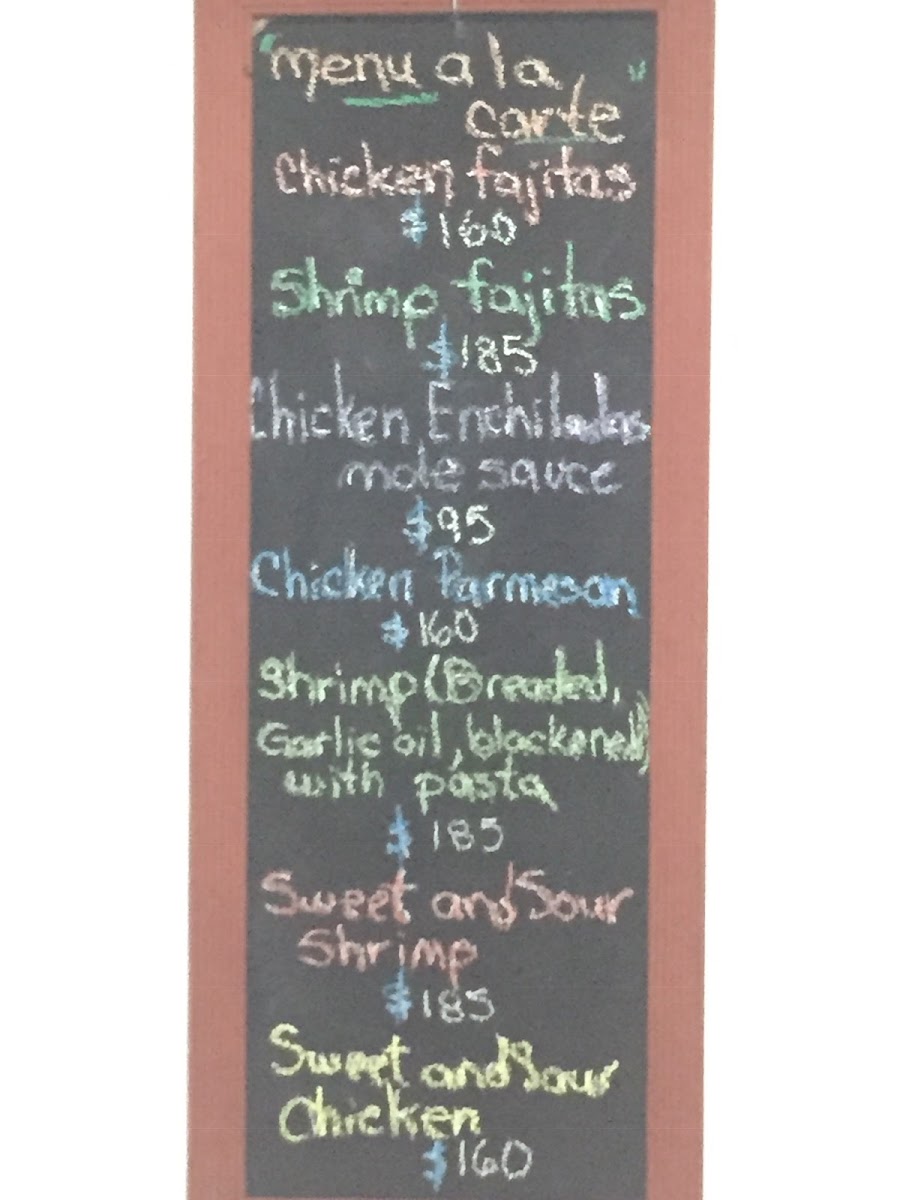 "menu a la "
carte
Chicken fajitas
$160
Shrimp fajitas
$185
Chicken Enchiladas
mole sauce
$95
Chicken Parmesan
$160
Shrimp (Breaded,
Garlic oil, blackened)
with pasta
$185
Sweet and Sour
Shrimp
$185
Sweet and Sour
Chicken
$160